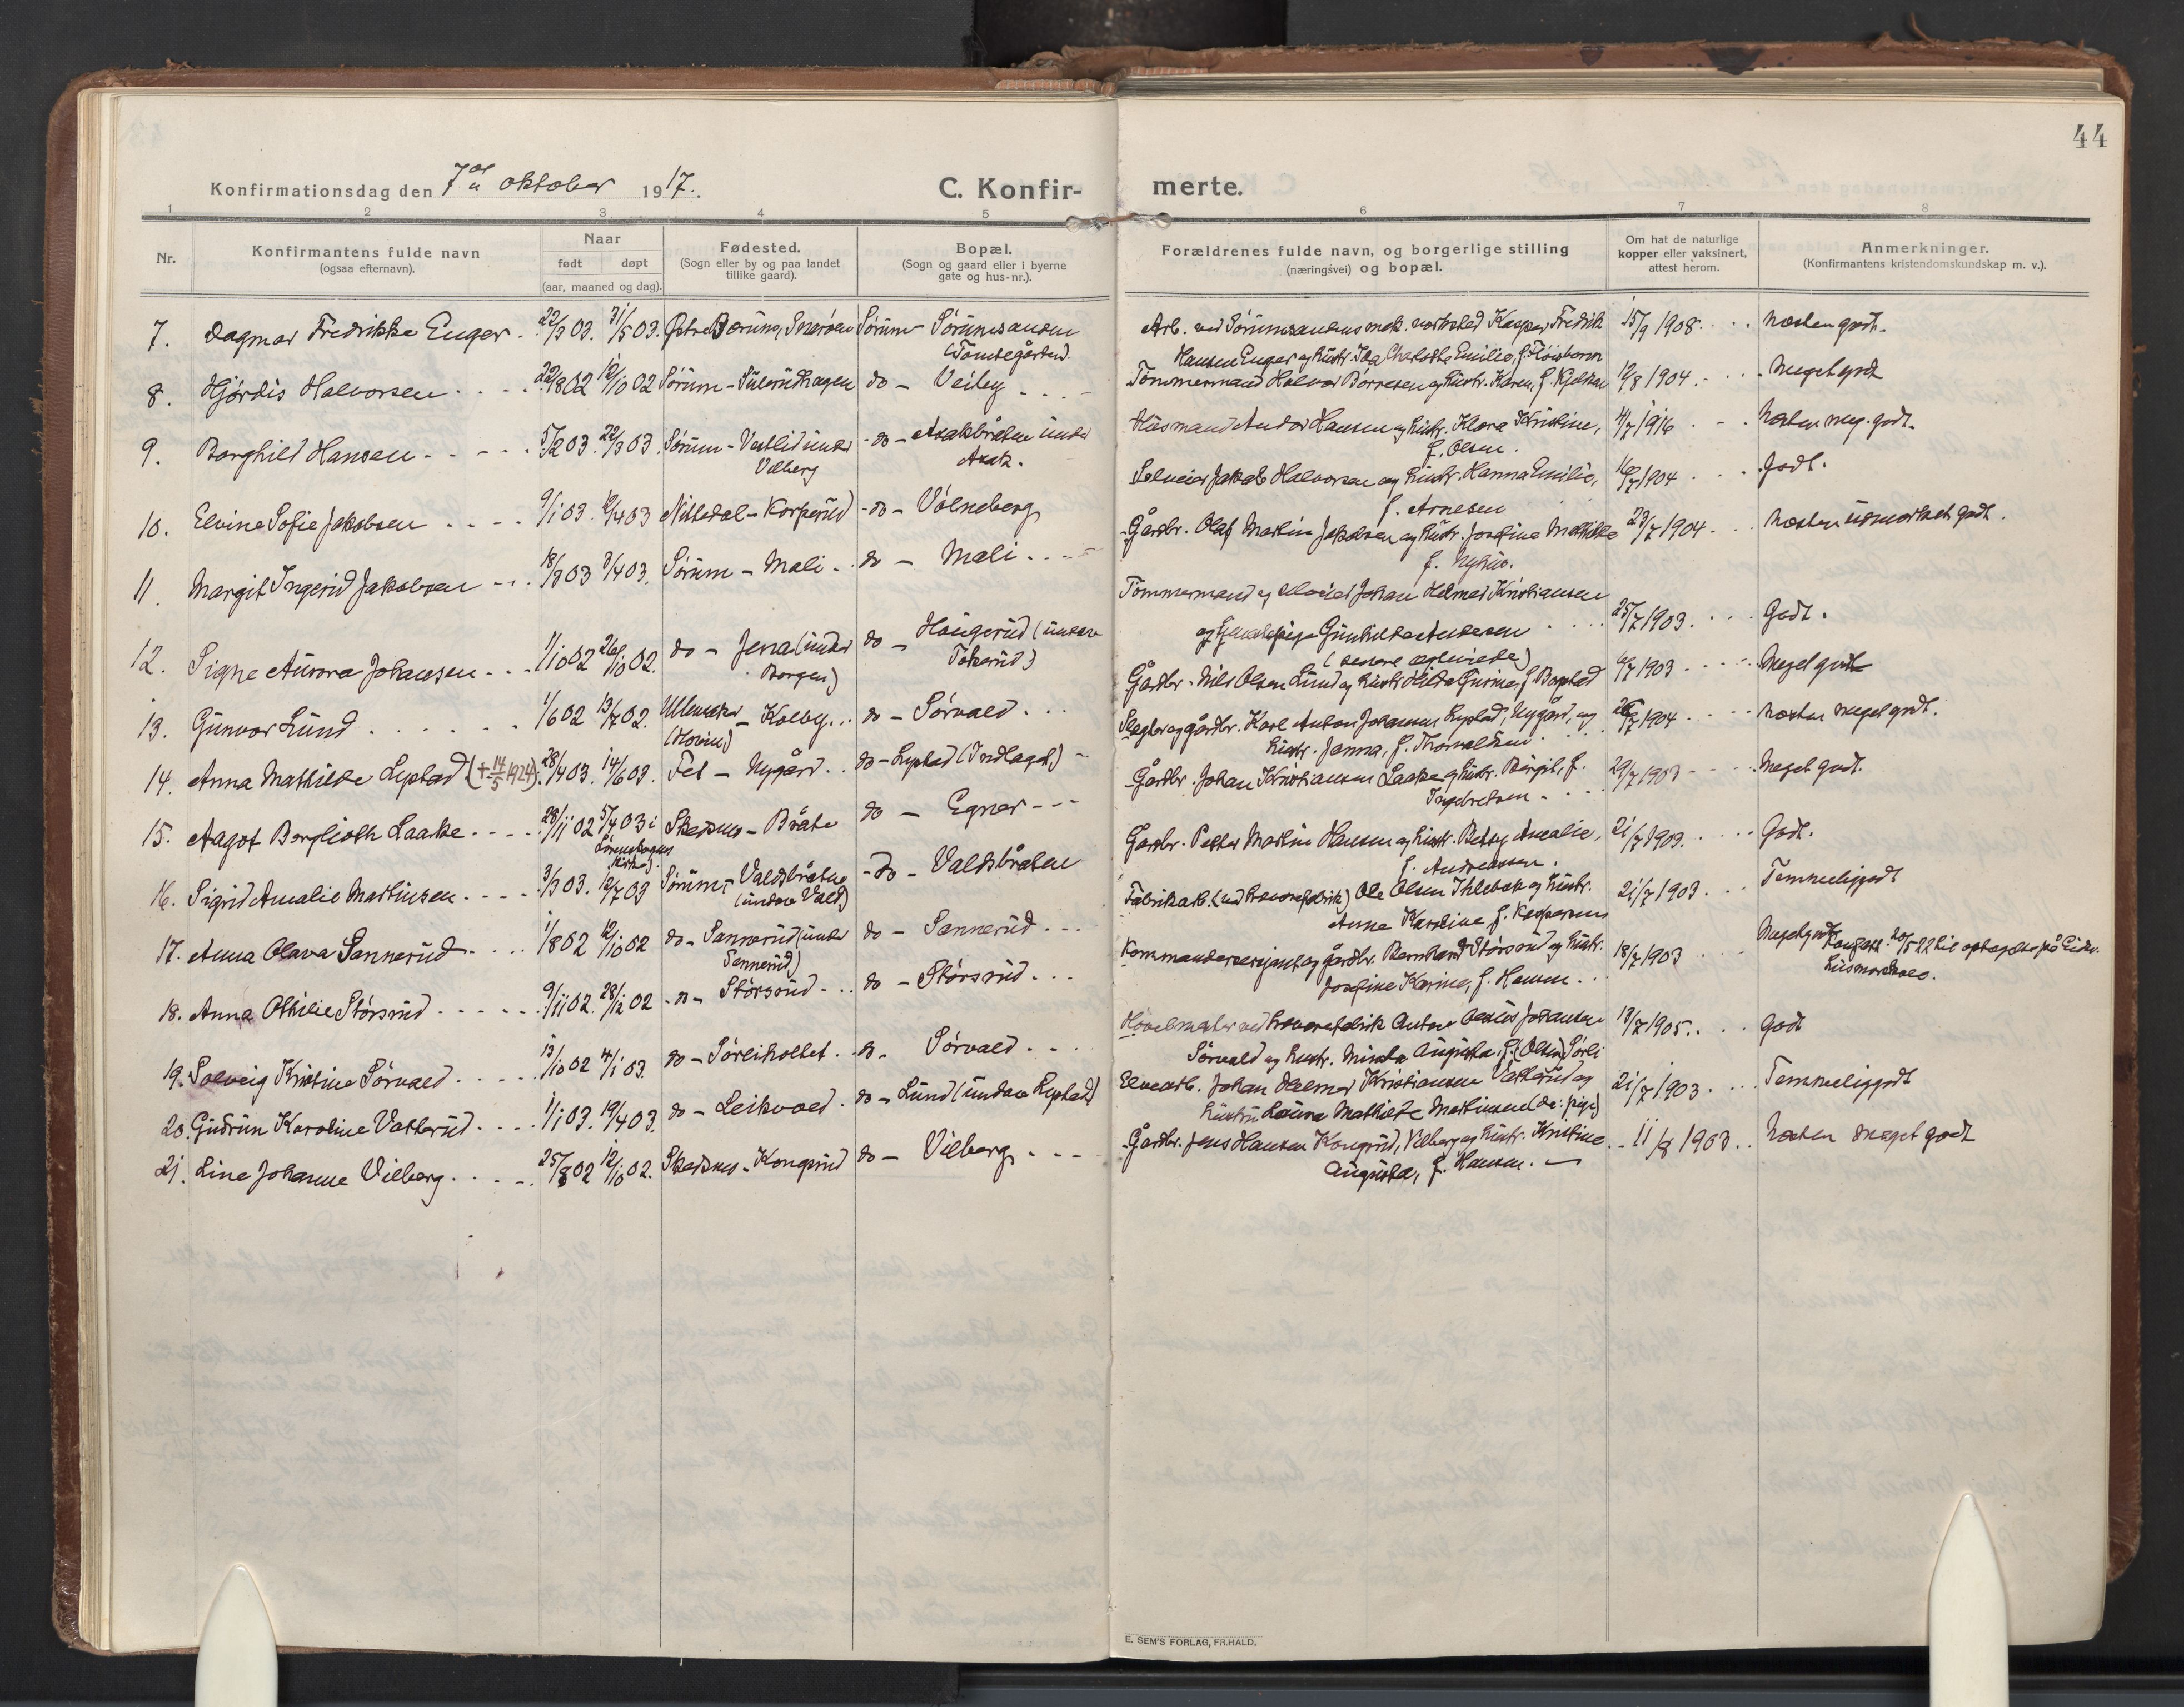 44
Konfirmationsdag den 7de oktober 1917.
C. Konfir-
merte.
1 2 3 4 5 6 7 8
Nr.
Konfirmantens fulde navn
(ogsaa efternavn).
Naar
født døpt
(aar, maaned og dag).
Fødested.
(Sogn eller by og paa landet
tillike gaard).
Bopæl.
(Sogn og gaard eller i byerne
gate og hus-nr.).
Forældrenes fulde navn, og borgerlige stilling
(næringsvei) og bopæl.
Om hat de naturlige
kopper eller vaksinert,
attest herom.
Anmerkninger.
(Konfirmantens kristendomskundskap m. v.).
7. Dagmar Fredrikke Enger 22/3 03. 31/5 03. Østre Bærum, Snarøen Sørum - Sørumsanden
(Tomtegården)
Arb. ved Sørumsandens mek. verksted Kasper Fredrik 15/9 1908. næsten godt.
Hansen Enger og hustr. Ida Charlotte Emilie, f.
8. Hjørdis Halvorsen 22/8 02 12/10 02 Sørum - do - Veiby
Tømmermand Halvor Børresen og hustr. Karen, f. 12/8 1904. Meget godt
9. Borghild Hansen 5/2 03. 22/3 03. Sørum - Vestlid under
Vilberg
- do - Asakbråten under
Asak.
Husmand Hansen og hustr. Klara Kristine, 4/7 1916 Næsten meg. godt.
f. Olsen.
10. Elvine Sofie Jakobsen 9/1 03. 12/4 03 Nittedal - Korperud - do - Vølneberg
Jakob Halvorsen og hustr. Hanna Emilie, 16/7 1904 Godt.
f. Arnesen
11. Margit Ingerid Jakobsen 18/3 03 3/4 03. Sørum - Mali do - Mali
Gårdbr. Olaf Martin Jakobsen og hustr. Josefine Mathilde 23/7 1904 Næsten usmerket godt.
f. Nyhus.
12. Signe Aurora Johansen 1/10 02 26/10 02. do - Jena (under
Borgen)
do - Haugerud (under
Tokerud)
Tømmermand og Johan Helmer Kristiansen
og pige Gunhilda Andersen 25/7 1903. Godt.
(senere egteviede)
13. Gunvor Lund 1/6 02 13/7 02. Ullensaker - Kolby
(Hovin)
do - Sørvald
Gårdbr. Nils Olsen Lund og hustr. Hilda Gurine, f. 4/7 1903 Meget godt
14. Anna Mathilde Lystad (+ 14/5 1924) 28/4 03. 14/6 03. Fet - Nygård do - Lystad (Indlaget)
Slagter og gårdbr. Karl Anton Johansen Lystad, Nygård, og 26/7 1904 næsten meget godt.
hustr. Janna, f. Thorvaldsen
15. Aagot Bergljoth Laake 28/11 02 5/4 03 i
Lørenskogens
kirke).
Skedsmo - Bråte do - Egner
Gårdbr. Johan Kristiansen Laake og hustr. Birgit, f. 29/7 1903 Meget godt.
Ingebretsen
16. Sigrid Amalie Martinsen 3/3 03. 12/7 03 Sørum - Valdsbråten
(under Vald)
- do - Valdsbråten
Gårdbr. Petter Martin Hansen og hustr. Betsy Amalie, 21/7 1903. Godt.
f. Andreassen.
17. Anna Olava Sannerud 1/8 02 12/10 02 do - Sannerud (under
Sannerud)
do - Sannerud
Fabrikarb. Ole Olsen og hustr. 21/7 1903. Temmelig godt
Anne Karoline f. Kaspersen
18. Anna Othilie Størsrud 9/11 02. 28/12 02 - do - Størsrud do - Størsrud
Kommandersersjant og gårdbr. Bernhard Størsrud og hustr. 18/7 1903 Meget godt
Josefine Karine, f. Hansen.
20/5 22 til optagelse på
husmorskole.
19. Solveig Kristine Sørvald 13/10 02 4/1 03. do - Sørliholtet do. Sørvald
Anton Johansen 13/7 1905. godt
Sørvald og hustr. Augusta, f. (Olsen) Sørli
20. Gudrun Karoline Vatterud 1/1 03. 19/4 03. do - Leikvold do - Lund (under Lystad)
Elvearb. Johan Helmer Kristiansen Vatterud og 21/7 1903. Temmelig godt
hustru Laura Mathilde Martinsen (da: pige)
21. Line Johanne Vilberg 25/8 02 12/10 02. Skedsmo - Kongsrud do - Vilberg
Gårdbr. Jens Hansen Kongsrud, Vilberg og hustr. Kristine 11/8 1903 Næsten meget godt
Augusta, f. Hansen.
E. SEM'S FORLAG, FR.HALD.